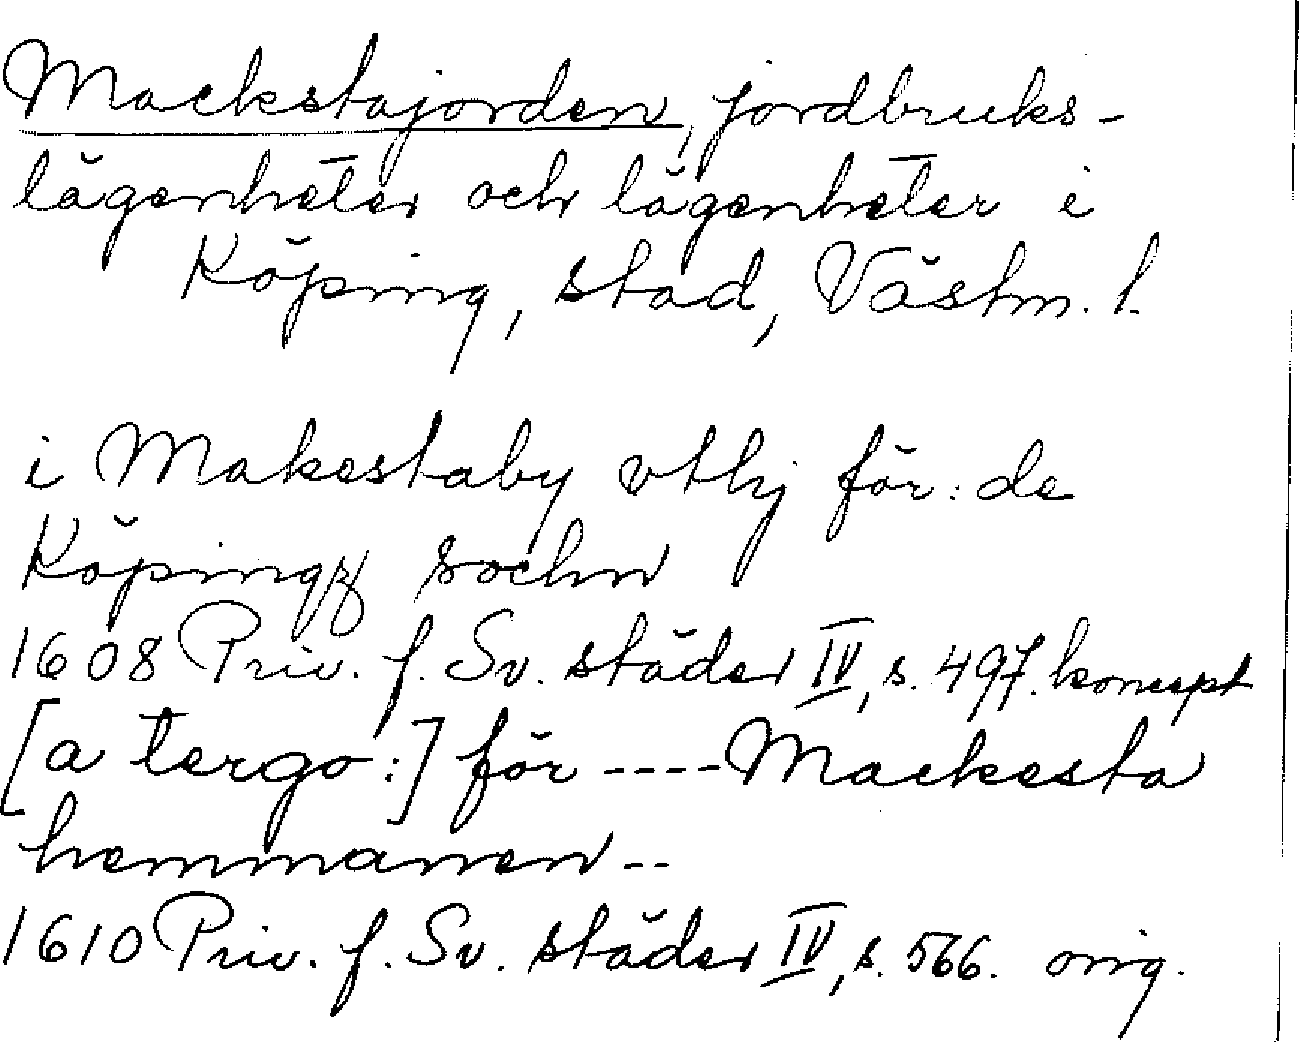 Mackstajorden, jordbruks-
lägenheter och lägenheter i
Köping, stad, Västm. l.
i Makestaby vthj för:de
Köpingz sochn
1608 Priv. f. Sv. städer IV, s. 497. koncept
[a tergo:] för ---- Mackesta
hemmanen --
1610 Priv. f. Sv. städer IV, s. 566. orig.